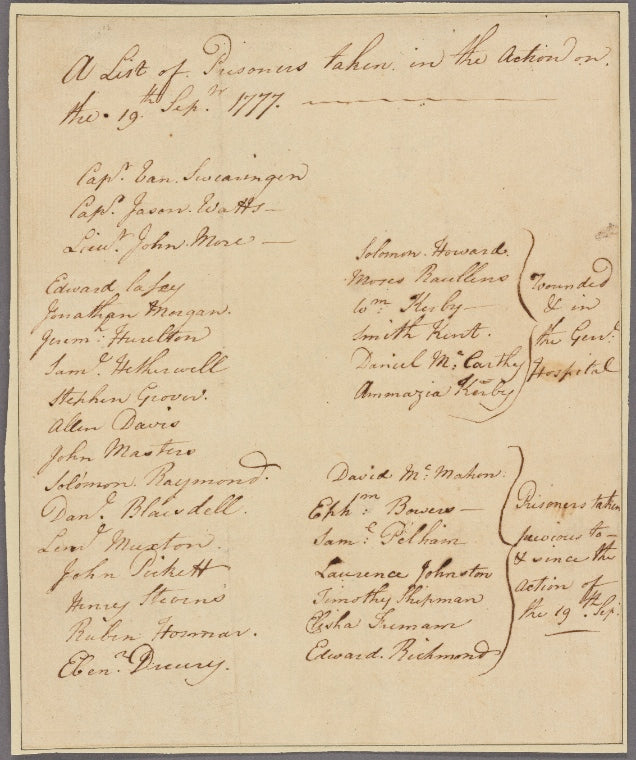 A List of Prisoners taken in the Action on
the 19th Sepr 1777.
Capt. Van. Swearingen
Capt. Jason. Watts
Lieut. John. More
Edward Cafey
Jonathan Morgan.
Jerem:h Huselton
Saml. Hetherwell
Stephen Grover.
Allen Davis
John Masters
Solomon Raymond.
Danl. Blaisdell.
Lemd. Muxton.
John Pickett
Henry Stevens
Rubin Hosmar.
Ebenr. Druery.
Solomon. Howard.
Moses Raullens
Wm. Kerby
Smith Kent.
Daniel Mc. Carthy
Ammazia Kerby
Wounded
& in
the Genl.
Hospital
David Mc. Mahon
Ephm: Bowers
Saml: Pelham
Laurence Johnston
Timothy Shipman
Elisha Freman
Edward. Richmond
Prisoners taken
previous to
& since the
Action of
the 19th. Sep.